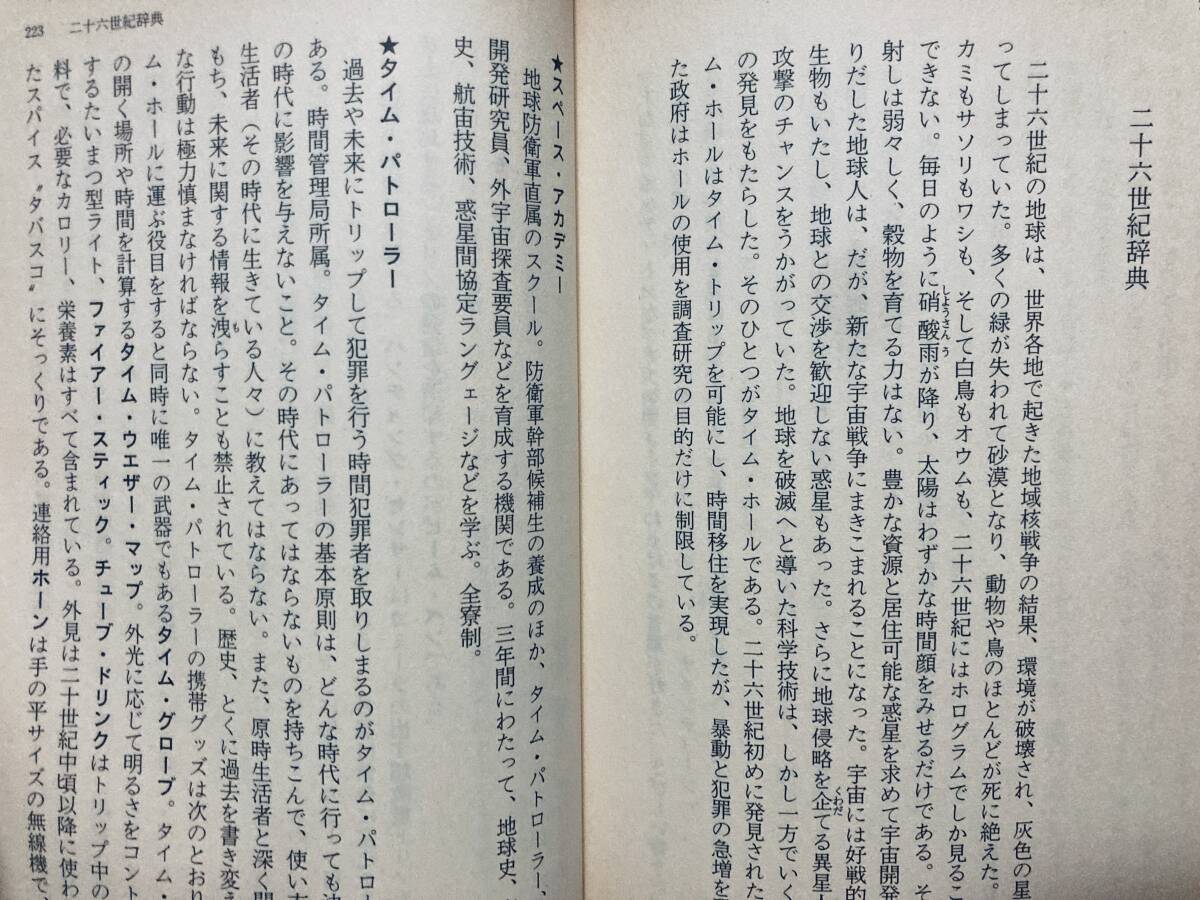 二十六世紀辞典
二十六世紀の地球は、世界各地で起きた地域核戦争の結果、環境が破壊され、灰色の星
ってしまっていた。多くの緑が失われて砂漠となり、動物や鳥のほとんどが死に絶えた。
カミもサソリもワシも、そして白鳥もオウムも、二十六世紀にはホログラムでしか見るこ
できない。毎日のように硝酸雨が降り、太陽はわずかな時間顔をみせるだけである。そ
射しは弱々しく、穀物を育てる力はない。豊かな資源と居住可能な惑星を求めて宇宙開発
りだした地球人は、だが、新たな宇宙戦争にまきこまれることになった。宇宙には好戦的
生物もいたし、地球との交渉を歓迎しない惑星もあった。さらに地球侵略を企てる異星人
攻撃のチャンスをうかがっていた。地球を破滅へと導いた科学技術は、しかし一方でいく
の発見をもたらした。そのひとつがタイム・ホールである。二十六世紀初めに発見された
ム・ホールはタイム・トリップを可能にし、時間移住を実現したが、暴動と犯罪の急増を
た政府はホールの使用を調査研究の目的だけに制限している。
223 二十六世紀辞典
★スペース・アカデミー
地球防衛軍直属のスクール。防衛軍幹部候補生の養成のほか、タイム・パトローラー、
開発研究員、外宇宙探査要員などを育成する機関である。三年間にわたって、地球史、
史、航宙技術、惑星間協定ラングェージなどを学ぶ。全寮制。
★タイム・パトローラー
過去や未来にトリップして犯罪を行う時間犯罪者を取りしまるのがタイム・パトロー
ある。時間管理局所属。タイム・パトローラーの基本原則は、どんな時代に行っても決
の時代に影響を与えないこと。その時代にあってはならないものを持ちこんで、使い方
生活者（その時代に生きている人々）に教えてはならない。また、原時生活者と深く関
もち、未来に関する情報を洩らすことも禁止されている。歴史、とくに過去を書き変え
な行動は極力慎まなければならない。タイム・パトローラーの携帯グッズは次のとおり
ム・ホールに運ぶ役目をすると同時に唯一の武器でもあるタイム・グローブ。タイム・
の開く場所や時間を計算するタイム・ウエザー・マップ。外光に応じて明るさをコント
するたいまつ型ライト、ファイアー・スティック。チューブ・ドリンクはトリップ中の
料で、必要なカロリー、栄養素はすべて含まれている。外見は二十世紀中頃以降に使わ
たスパイス〝タバスコ〟にそっくりである。連絡用ホーンは手の平サイズの無線機で、